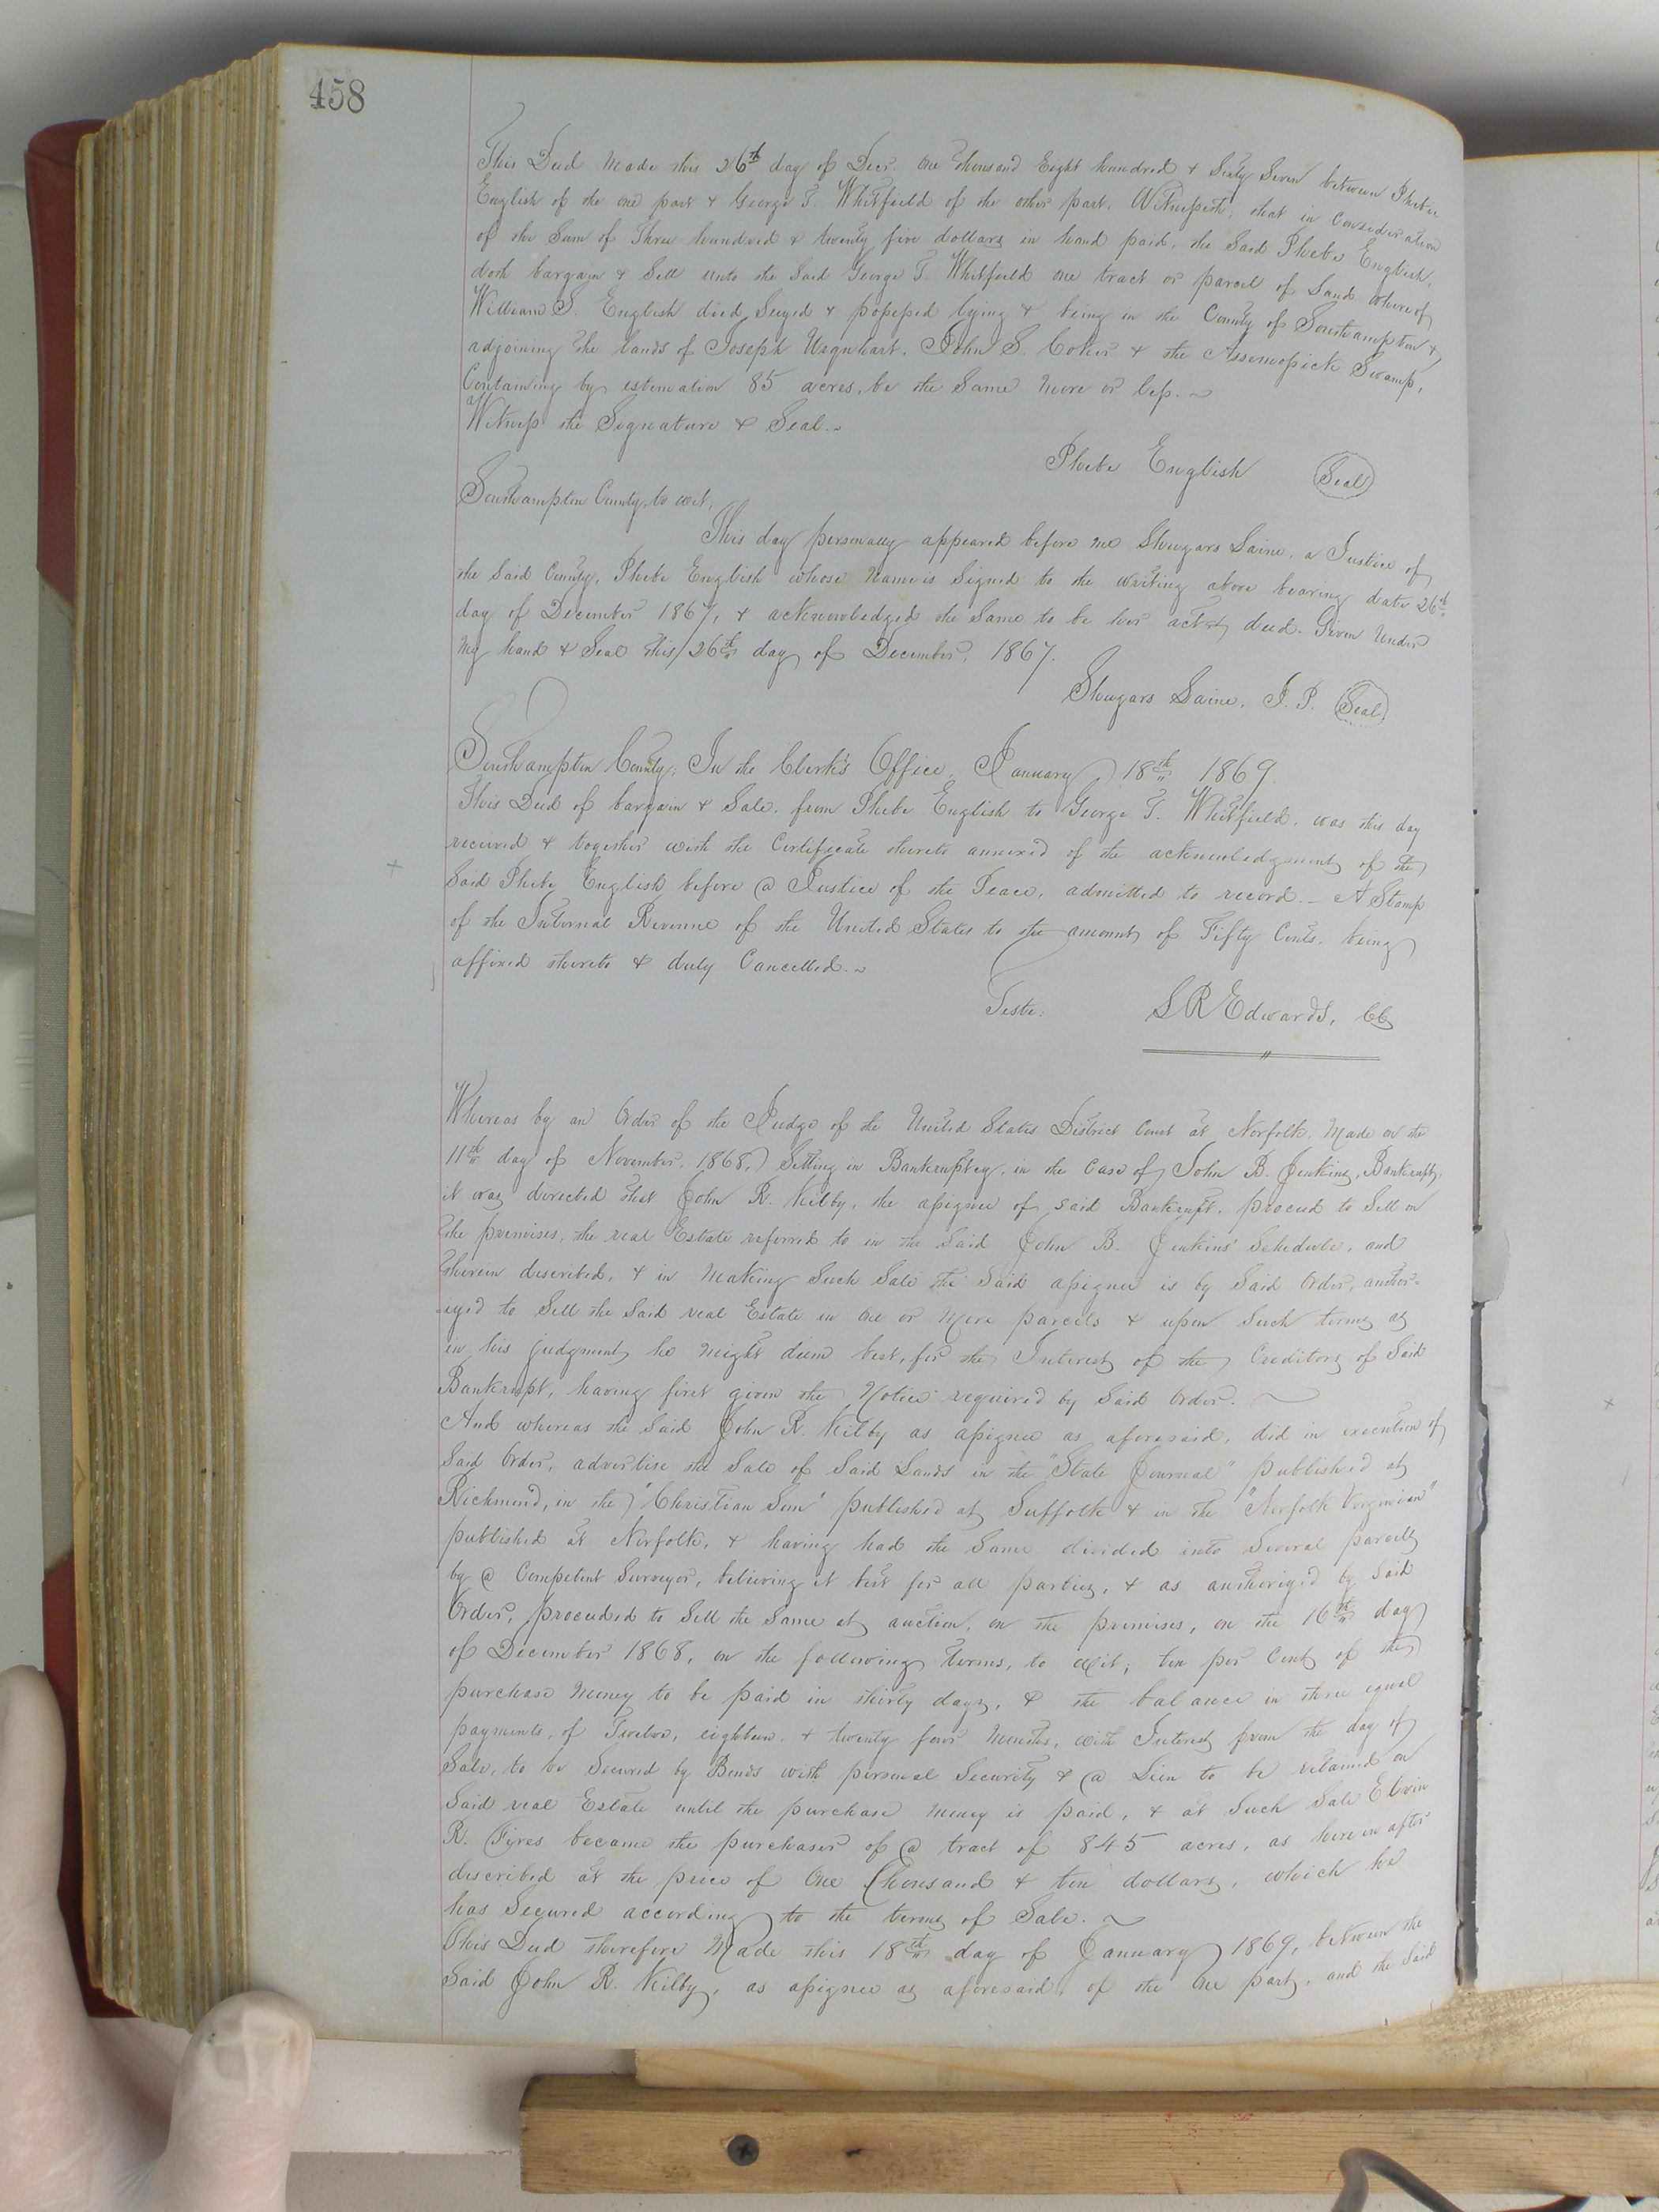 458
This Deed Made this 26th day of Decr. One Thousand Eight hundred & Sixty Seven between Phebe
English of the one part & George T. Whitfield of the other part. Witnesseth, that in Consideration
of the Sum of Three hundred & twenty five dollars in hand paid, the Said Phebe English,
doth bargain & Sell unto the Said George T. Whitfield one tract or parcel of Land whereof
William S. English died Seized & possessed lying & being in the County of Southampton &
adjoining the lands of Joseph Urquhart, John S. Coker & the Assemosick Swamp,
Containing by estimation 85 acres, be the Same More or less. ~
Witness the Signature & Seal. ~
Phebe English (Seal)
Southampton County, to wit;
This day personally appeared before me Shugars Laine, a Justice of
the Said County, Phebe English whose Name is Signed to the writing above bearing date 26th
day of December 1867, & acknowledged the Same to be her act & deed. Given Under
My hand & Seal this 26th day of December, 1867.
Shugars Laine, J. P. (Seal)
Southampton County; In the Clerk's Office, January 18th 1869.
This Deed of bargain & Sale, from Phebe English to George T. Whitfield, was this day
received & together with the Certificate thereto annexed of the acknowledgment of the
Said Phebe English before a Justice of the Peace, admitted to record. _ A Stamp
of the Internal Revenue of the United States to the amount of Fifty Cents, being
affixed thereto & duly Cancelled. ~
Teste: L R Edwards, CC
Whereas by an Order of the Judge of the United States District Court at Norfolk, Made on the
11th day of November, 1868, Sitting in Bankruptcy, in the Case of John B. Jenkins, Bankrupt,
it was directed that John R. Kilby, the assignee of said Bankrupt, proceed to Sell on
the premises, the real Estate referred to in the Said John B. Jenkins' Schedule, and
therein described, & in Making Such Sale the Said assignee is by Said Order, author=
=ized to Sell the Said real Estate in One or More parcels & upon Such terms as
in his judgment he Might deem best, for the Interest of the Creditors of Said
Bankrupt, having first given the Notice required by Said Order. ~
And whereas the Said John R. Kilby as assignee as aforesaid, did in execution of
Said Order, advertise the Sale of Said Lands in the "State Journal" published at
Richmond, in the "Christian Sun" published at Suffolk & in the "Norfolk Virginian"
published at Norfolk, & having had the Same divided into Several parcels
by a Competent Surveyor, believing it best for all parties, & as authorized by Said
Order, proceeded to Sell the Same at auction, on the premises, on the 16th day
of December 1868, on the following terms, to wit; ten per Cent of the
purchase Money to be paid in thirty days, & the balance in three equal
payments, of Twelve, eighteen, & twenty four Months, with Interest from the day of
Sale, to be Secured by Bonds with personal Security & a Lien to be retained on
Said real Estate until the purchase Money is paid, & at Such Sale Elvin
R. became the purchaser of a tract of 845 acres, as herein after
described at the price of One Thousand & ten dollars, which he
has Secured according to the terms of Sale. ~
This Deed therefore Made this 18th day of January 1869, between the
Said John R. Kilby, as assignee as aforesaid, of the One part, and the Said